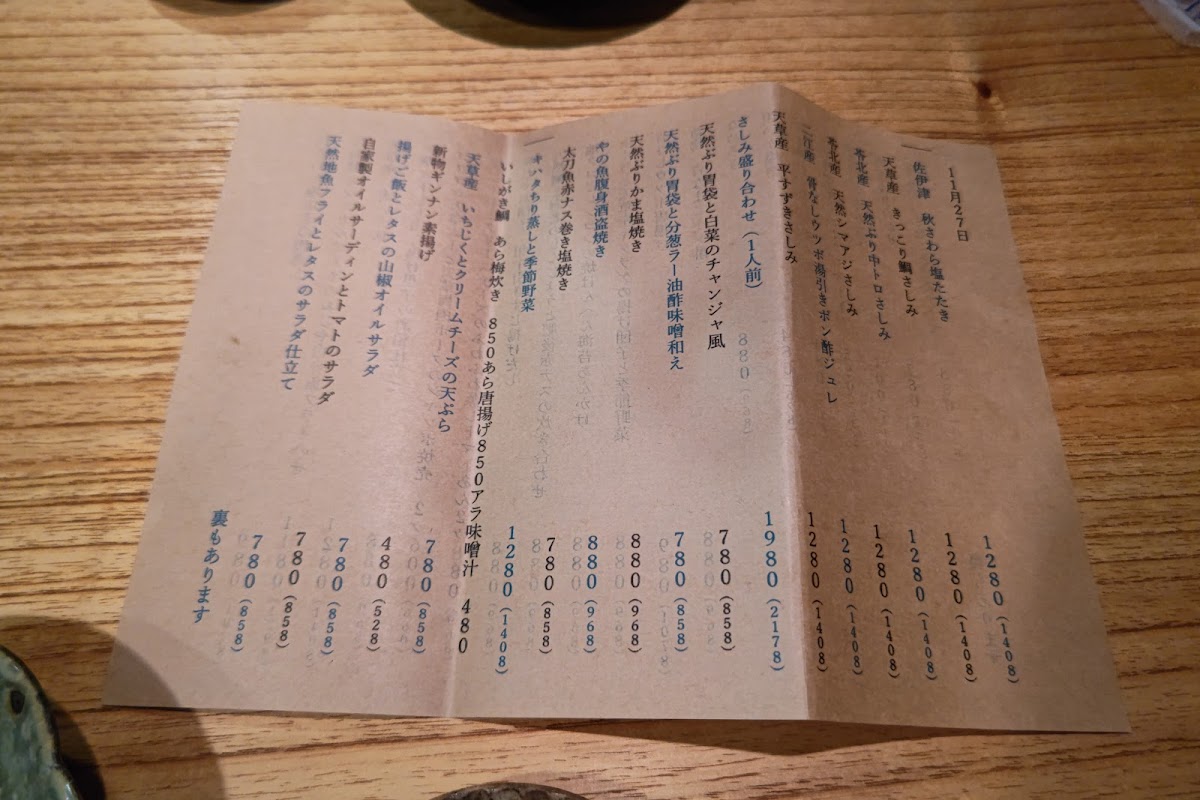 11月27日
佐伊津 秋さわら塩たたき 1280(1408)
天草産 きっこり鯛さしみ 1280(1408)
苓北産 天然ぶり中トロさしみ 1280(1408)
苓北産 天然シマアジさしみ 1280(1408)
二江産 骨なしウツボ湯引きポン酢ジュレ 1280(1408)
天草産 平すずきさしみ 1280(1408)
さしみ盛り合わせ(1人前) 1980(2178)
天然ぶり胃袋と白菜のチャンジャ風 780(858)
天然ぶり胃袋と分葱ラー油酢味噌和え 780(858)
天然ぶりかま塩焼き 880(968)
やの魚腹身酒盗焼き 880(968)
太刀魚赤ナス巻き塩焼き 780(858)
キハタちり蒸しと季節野菜 1280(1408)
いしがき鯛 あら梅炊き 850あら唐揚げ850アラ味噌汁 480
天草産 いちじくとクリームチーズの天ぷら 780(858)
新物ギンナン素揚げ 480(528)
揚げご飯とレタスの山椒オイルサラダ 780(858)
自家製オイルサーディンとトマトのサラダ 780(858)
天然地魚フライとレタスのサラダ仕立て 780(858)
裏もあります